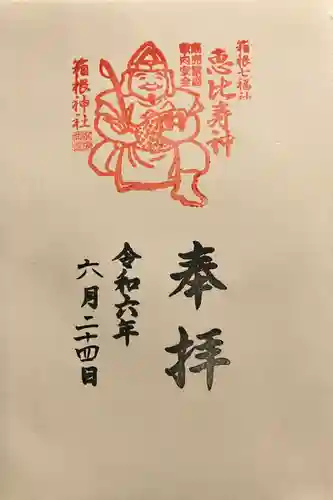 箱根七福神
恵比寿神
商売繁昌
家内安全
箱根神社
奉拝
令和六年
六月二十四日